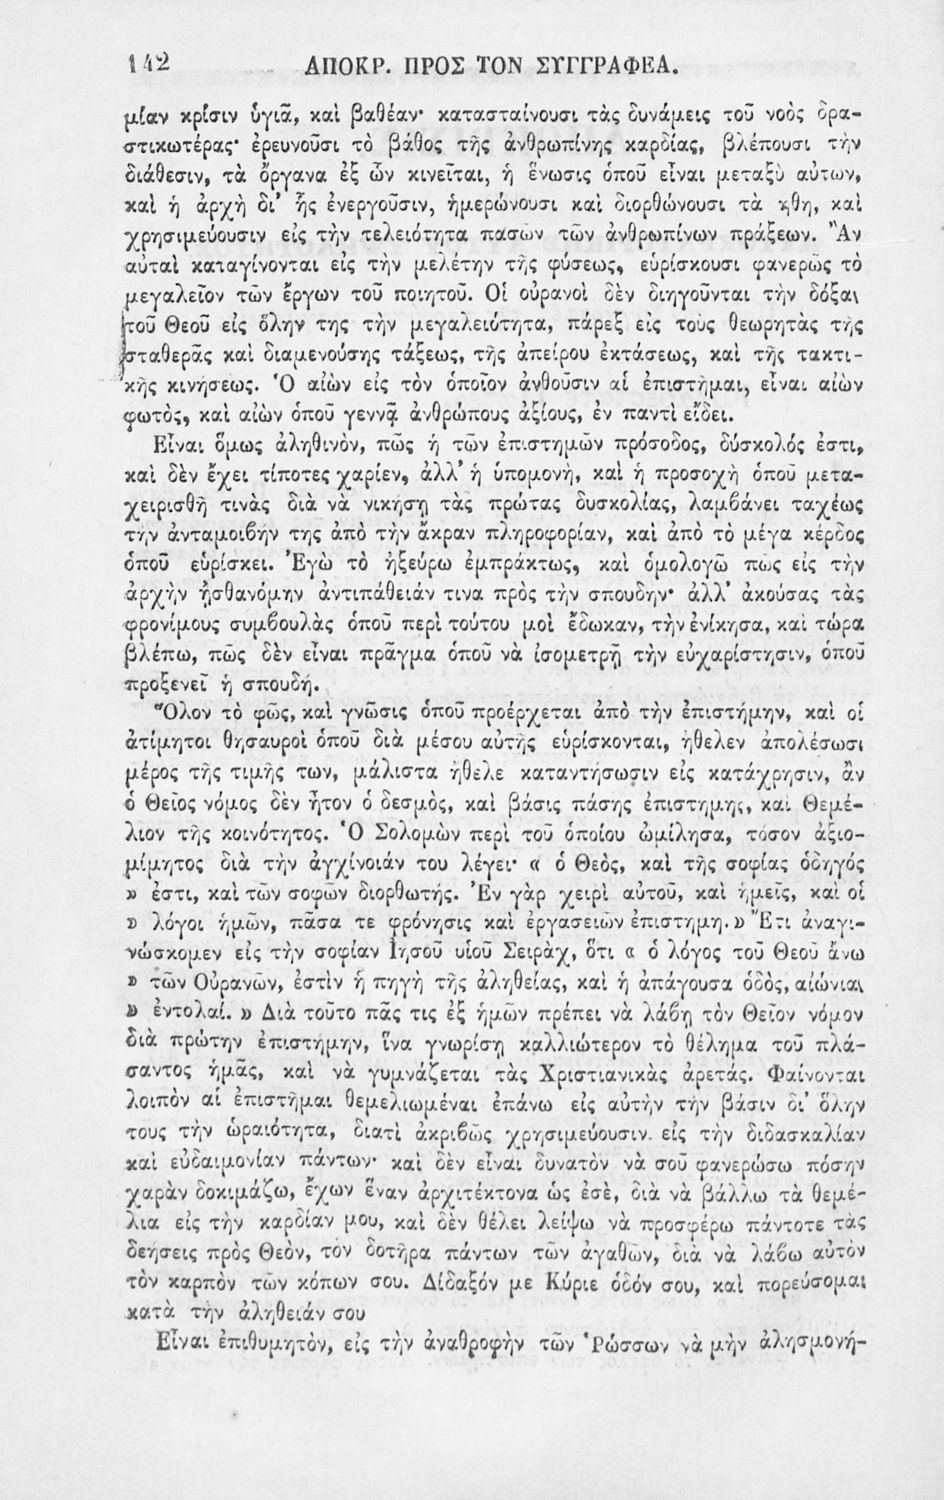 142 ΑΠΟΚΡ. ΠΡΟΣ ΤΟΝ ΣΥΓΓΡΑΦΕΑ.
μίαν κρίσιν ὑγιᾶ, καὶ βαθέαν· κατασταίνουσι τὰς δυνάμεις τοῦ νοὸς δρα-
στικωτέρας· ἐρευνοῦσι τὸ βάθος τῆς ἀνθρωπίνης καρδίας, βλέπουσι τὴν
διάθεσιν, τὰ ὄργανα ἐξ ὧν κινεῖται, ἡ ἕνωσις ὁποῦ εἶναι μεταξὺ αὐτων,
καὶ ἡ ἀρχὴ δι' ἧς ἐνεργοῦσιν, ἡμερώνουσι καὶ διορθώνουσι τὰ ἤθη, καὶ
χρησιμεύουσιν εἰς τὴν τελειότητα πασῶν τῶν ἀνθρωπίνων πράξεων. Ἂν
αὐταὶ καταγίνονται εἰς τὴν μελέτην τῆς φύσεως, εὑρίσκουσι φανερῶς τὸ
μεγαλεῖον τῶν ἔργων τοῦ ποιητοῦ. Οἱ οὐρανοὶ δὲν διηγοῦνται τὴν δόξαν
τοῦ Θεοῦ εἰς ὅλην της τὴν μεγαλειότητα, πάρεξ εἰς τοὺς θεωρητὰς τῆς
σταθερᾶς καὶ διαμενούσης τάξεως, τῆς ἀπείρου ἐκτάσεως, καὶ τῆς τακτι-
κῆς κινήσεως. Ὁ αἰὼν εἰς τὸν ὁποῖον ἀνθοῦσιν αἱ ἐπιστῆμαι, εἶναι αἰὼν
φωτὸς, καὶ αἰὼν ὁποῦ γεννᾷ ἀνθρώπους ἀξίους, ἐν παντὶ εἴδει.
Εἶναι ὅμως ἀληθινὸν, πῶς ἡ τῶν ἐπιστημῶν πρόσοδος, δύσκολός ἐστι,
καὶ δὲν ἔχει τίποτες χαρίεν, ἀλλ' ἡ ὑπομονὴ, καὶ ἡ προσοχὴ ὁποῦ μετα-
χειρισθῆ τινὰς διὰ νὰ νικήσῃ τὰς πρώτας δυσκολίας, λαμβάνει ταχέως
τὴν ἀνταμοιβήν της ἀπὸ τὴν ἄκραν πληροφορίαν, καὶ ἀπὸ τὸ μέγα κέρδος
ὁποῦ εὑρίσκει. Ἐγὼ τὸ ἠξεύρω ἐμπράκτως, καὶ ὁμολογῶ πῶς εἰς τὴν
ἀρχὴν ᾐσθανόμην ἀντιπάθειάν τινα πρὸς τὴν σπουδην· ἀλλ' ἀκούσας τὰς
φρονίμους συμβουλὰς ὁποῦ περὶ τούτου μοὶ ἔδωκαν, τὴν ἐνίκησα, καὶ τώρα
βλέπω, πῶς δὲν εἶναι πρᾶγμα ὁποῦ νὰ ἰσομετρῇ τὴν εὐχαρίστησιν, ὁποῦ
προξενεῖ ἡ σπουδή.
Ὅλον τὸ φῶς, καὶ γνῶσις ὁποῦ προέρχεται ἀπὸ τὴν ἐπιστήμην, καὶ οἱ
ἀτίμητοι θησαυροὶ ὁποῦ διὰ μέσου αὐτῆς εὑρίσκονται, ἤθελεν ἀπολέσωσι
μέρος τῆς τιμῆς των, μάλιστα ἤθελε καταντήσωσιν εἰς κατάχρησιν, ἂν
ὁ Θεῖος νόμος δὲν ἦτον ὁ δεσμὸς, καὶ βάσις πάσης ἐπιστημης, καὶ Θεμέ-
λιον τῆς κοινότητος. Ὁ Σολομὼν περὶ τοῦ ὁποίου ὡμίλησα, τόσον ἀξιο-
μίμητος διὰ τὴν ἀγχίνοιάν του λέγει· « ὁ Θεὸς, καὶ τῆς σοφίας ὁδηγός
» ἐστι, καὶ τῶν σοφῶν διορθωτής. Ἐν γὰρ χειρὶ αὐτοῦ, καὶ ἡμεῖς, καὶ οἱ
» λόγοι ἡμῶν, πᾶσα τε φρόνησις καὶ ἐργασειῶν ἐπιστημη. » Ἔτι ἀναγι-
νώσκομεν εἰς τὴν σοφίαν Ἰησοῦ υἱοῦ Σειρὰχ, ὅτι « ὁ λόγος τοῦ Θεοῦ ἄνω
» τῶν Οὐρανῶν, ἐστὶν ἡ πηγὴ τῆς ἀληθείας, καὶ ἡ ἀπάγουσα ὁδὸς, αἰώνιαι
» ἐντολαί. » Διὰ τοῦτο πᾶς τις ἐξ ἡμῶν πρέπει νὰ λάβῃ τὸν Θεῖον νόμον
διὰ πρώτην ἐπιστήμην, ἵνα γνωρίσῃ καλλιώτερον τὸ θέλημα τοῦ πλά-
σαντος ἡμᾶς, καὶ νὰ γυμνάζεται τὰς Χριστιανικὰς ἀρετάς. Φαίνονται
λοιπὸν αἱ ἐπιστῆμαι θεμελιωμέναι ἐπάνω εἰς αὐτὴν τὴν βάσιν δι' ὅλην
τους τὴν ὡραιότητα, διατὶ ἀκριβῶς χρησιμεύουσιν εἰς τὴν διδασκαλίαν
καὶ εὐδαιμονίαν πάντων· καὶ δὲν εἶναι δυνατὸν νὰ σοῦ φανερώσω πόσην
χαρὰν δοκιμάζω, ἔχων ἕναν ἀρχιτέκτονα ὡς ἐσὲ, διὰ νὰ βάλλω τὰ θεμέ-
λια εἰς τὴν καρδίαν μου, καὶ δὲν θέλει λείψω νὰ προσφέρω πάντοτε τὰς
δεήσεις πρὸς Θεὸν, τὸν δοτῆρα πάντων τῶν ἀγαθῶν, διὰ νὰ λάβω αὐτὸν
τὸν καρπὸν τῶν κόπων σου. Δίδαξόν με Κύριε ὁδόν σου, καὶ πορεύσομαι
κατὰ τὴν ἀλήθειάν σου
Εἶναι ἐπιθυμητὸν, εἰς τὴν ἀναθροφὴν τῶν Ῥώσσων νὰ μὴν ἀλησμονή-